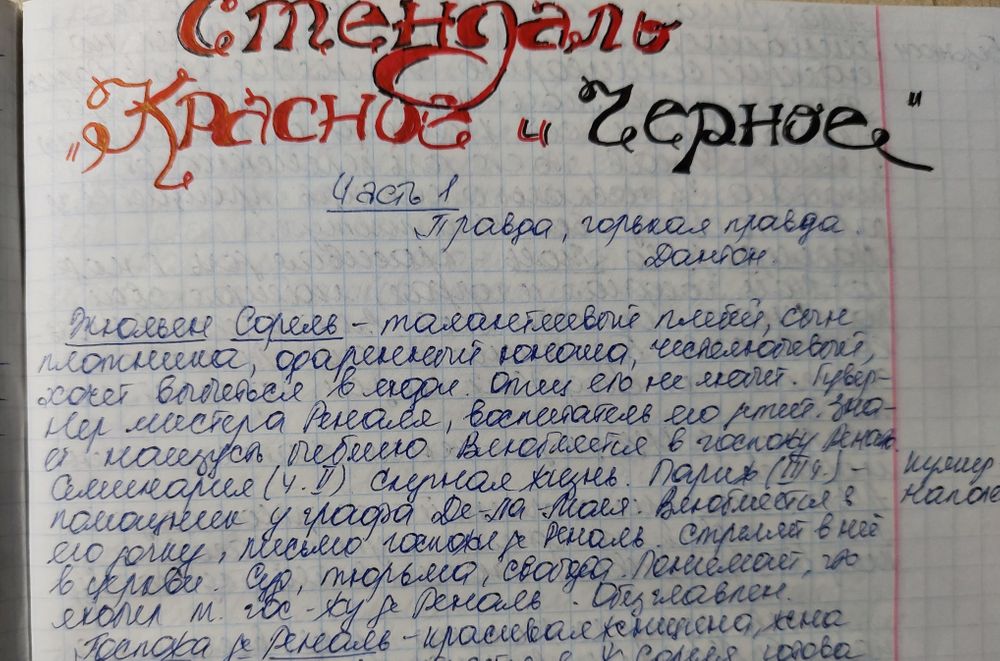 Стендаль
"Красное и Черное"
Часть 1
Правда, горькая правда.
Дантон.
Жюльен Сорель - талантливый плебей, сын
плотника, одаренный юноша, честолюбивый,
хочет выбиться в люди. Отец его не любит. Гувер-
нер мистера Реналя, воспитатель его детей. Зна-
ет наизусть Библию. Влюбляется в госпожу Реналь.
Семинария (ч. II) Скучная жизнь. Париж (III ч.) -
помощник у графа Де-ла-Моля. Влюбляется в
его дочку, письмо госпожи де Реналь. Стреляет в неё
в церкви. Суд, тюрьма, свобода. Понимает, что
любил т. гос-жу де Реналь. Обезглавлен.
Госпожа де Реналь - красивая женщина, жена
Сореля готова
кумир
Напол